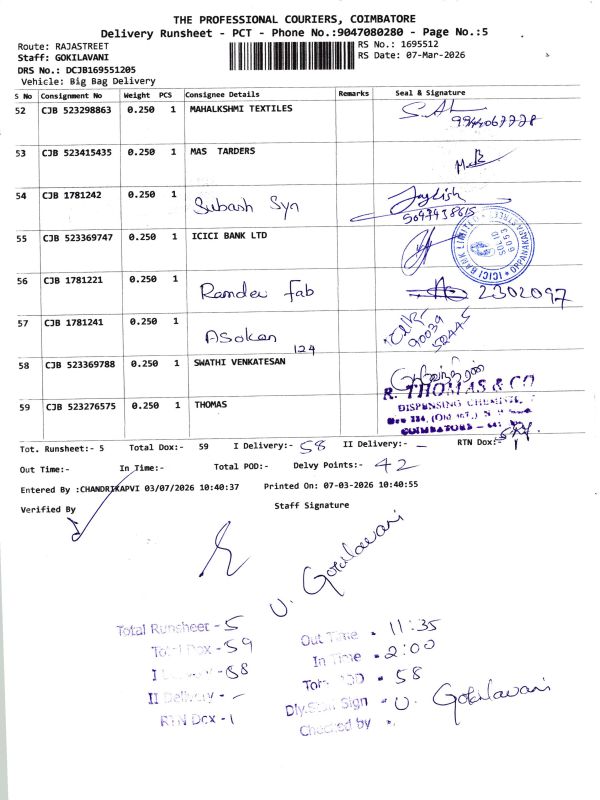 THE PROFESSIONAL COURIERS, COIMBATORE
Delivery Runsheet - PCT - Phone No.:9047080280 - Page No.:5
Route: RAJASTREET
RS No.: 1695512
Staff: GOKILAVANI
RS Date: 07-Mar-2026
DRS No.: DCJB169551205
Vehicle: Big Bag Delivery
S No Consignment No Weight PCS Consignee Details Remarks Seal & Signature
52 CJB 523298863 0.250 1 MAHALKSHMI TEXTILES
53 CJB 523415435 0.250 1 MAS TARDERS
54 CJB 1781242 0.250 1 Subash Syn
55 CJB 523369747 0.250 1 ICICI BANK LTD
ICICI BANK LIMITED OPPANAKARA STREET
56 CJB 1781221 0.250 1 Ramdev fab 2302097
57 CJB 1781241 0.250 1 Asokan 124
90039
58 CJB 523369788 0.250 1 SWATHI VENKATESAN
59 CJB 523276575 0.250 1 THOMAS
R. THOMAS & CO
DISPENSING CHEMIST
COIMBATORE
Tot. Runsheet:- 5 Total Dox:- 59 I Delivery:- 58 II Delivery:- - RTN Dox:-
Out Time:- In Time:- Total POD:- Delvy Points:- 42
Entered By :CHANDRIKAPVI 03/07/2026 10:40:37 Printed On: 07-03-2026 10:40:55
Verified By Staff Signature
U. Gokilavani
Total Runsheet - 5
Total Dox - 59
I Delivery - 58
II Delivery - -
RTN Dox - 1
Out Time - 11:35
In Time - 2:00
Total POD - 58
Dly.Staff Sign - U. Gokilavani
Checked by -